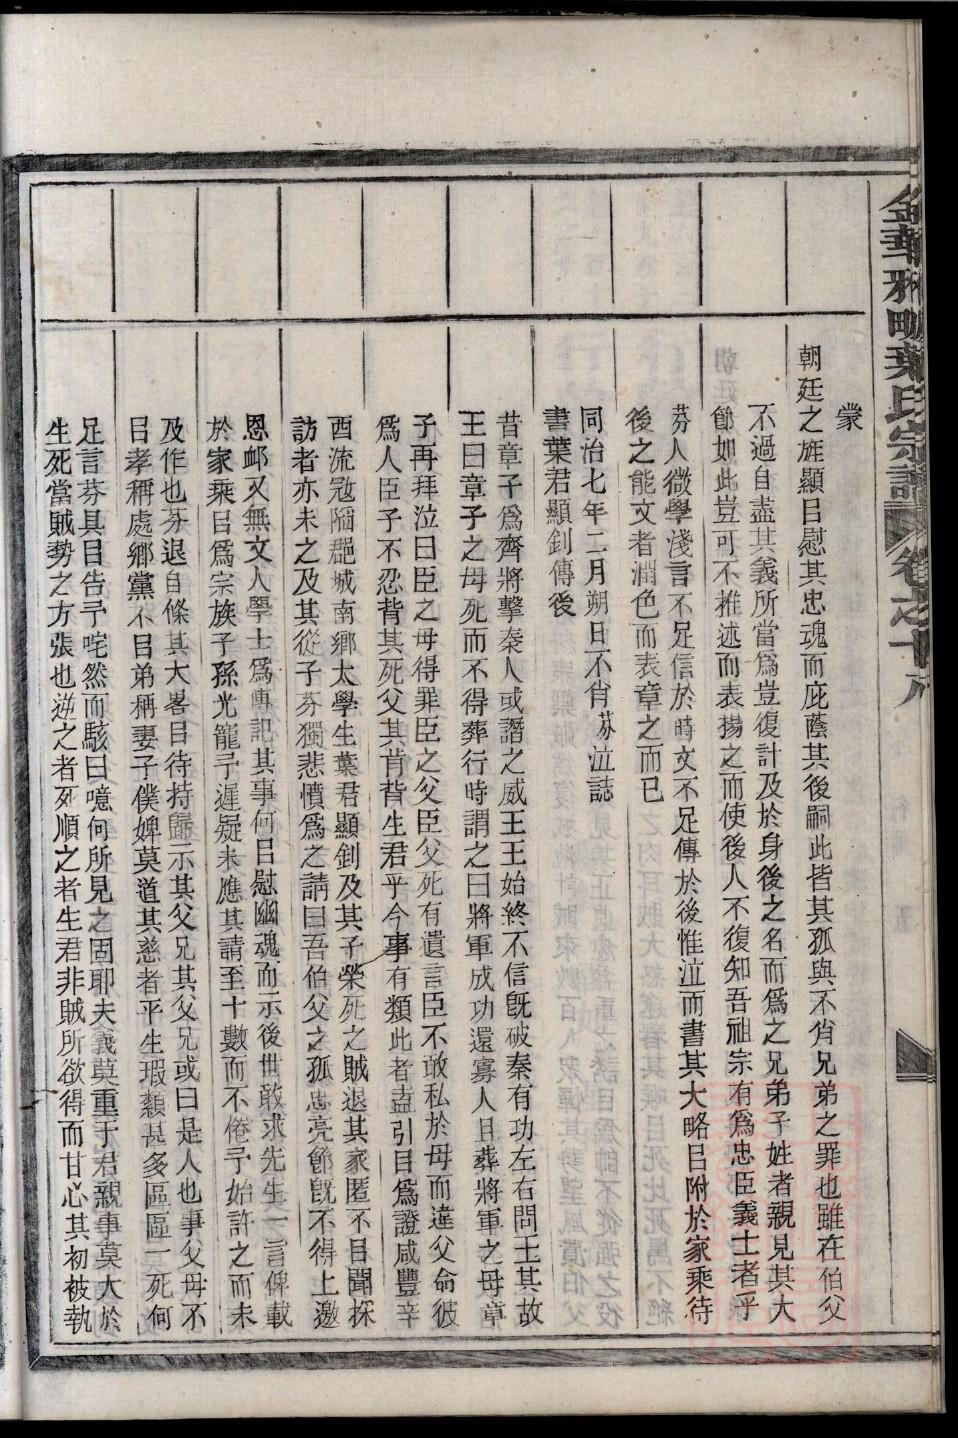 金華雅畈葉氏宗譜
卷之十八
蒙
朝廷之旌顯㠯慰其忠魂而庇蔭其後嗣此皆其孤與不肖兄弟之罪也雖在伯父
不過自盡其義所當爲豈復計及於身後之名而爲之兄弟子姓者親見其大
節如此豈可不褦述而表揚之而使後人不復知吾祖宗有爲忠臣義士者乎
芬人微學淺言不足信於時文不足傳於後惟泣而書其大略㠯附於家乘待
後之能文者潤色而表章之而已
同治七年二月朔日不肖芬泣誌
書葉君顯釗傳後
昔章子爲齊將擊秦人或譖之威王王始終不信旣破秦有功左右問王其故
王曰章子之母死而不得葬行時謂之曰將軍成功還寡人且葬將軍之母章
子再拜泣曰臣之母得罪臣之父臣父死有遺言臣不敢私於母而違父命彼
爲人臣子不忍背其死父其肯背生君乎今事有類此者盍引㠯爲證咸豐辛
酉流寇陷郡城南鄉太學生葉君顯釗及其子榮死之賊退其家匿不㠯聞採
訪者亦未之及其從子芬獨悲憤爲之請曰吾伯父之孤忠亮節旣不得上邀
恩卹又無文人學士爲傳記其事何㠯慰幽魂而示後世敢求先生一言俾載
於家乘㠯爲宗族子孫光寵予遲疑未應其請至十數而不倦予始許之而未
及作也芬退自條其大畧㠯待持歸示其父兄其父兄或曰是人也事父母不
㠯孝稱處鄉黨不㠯弟稱妻子僕婢莫道其慈者平生瑕纇甚多區區一死何
足言芬具㠯告予咤然而駭曰噫何所見之固耶夫義莫重于君親事莫大於
生死當賊勢之方張也逆之者死順之者生君非賊所欲得而甘心其初被執